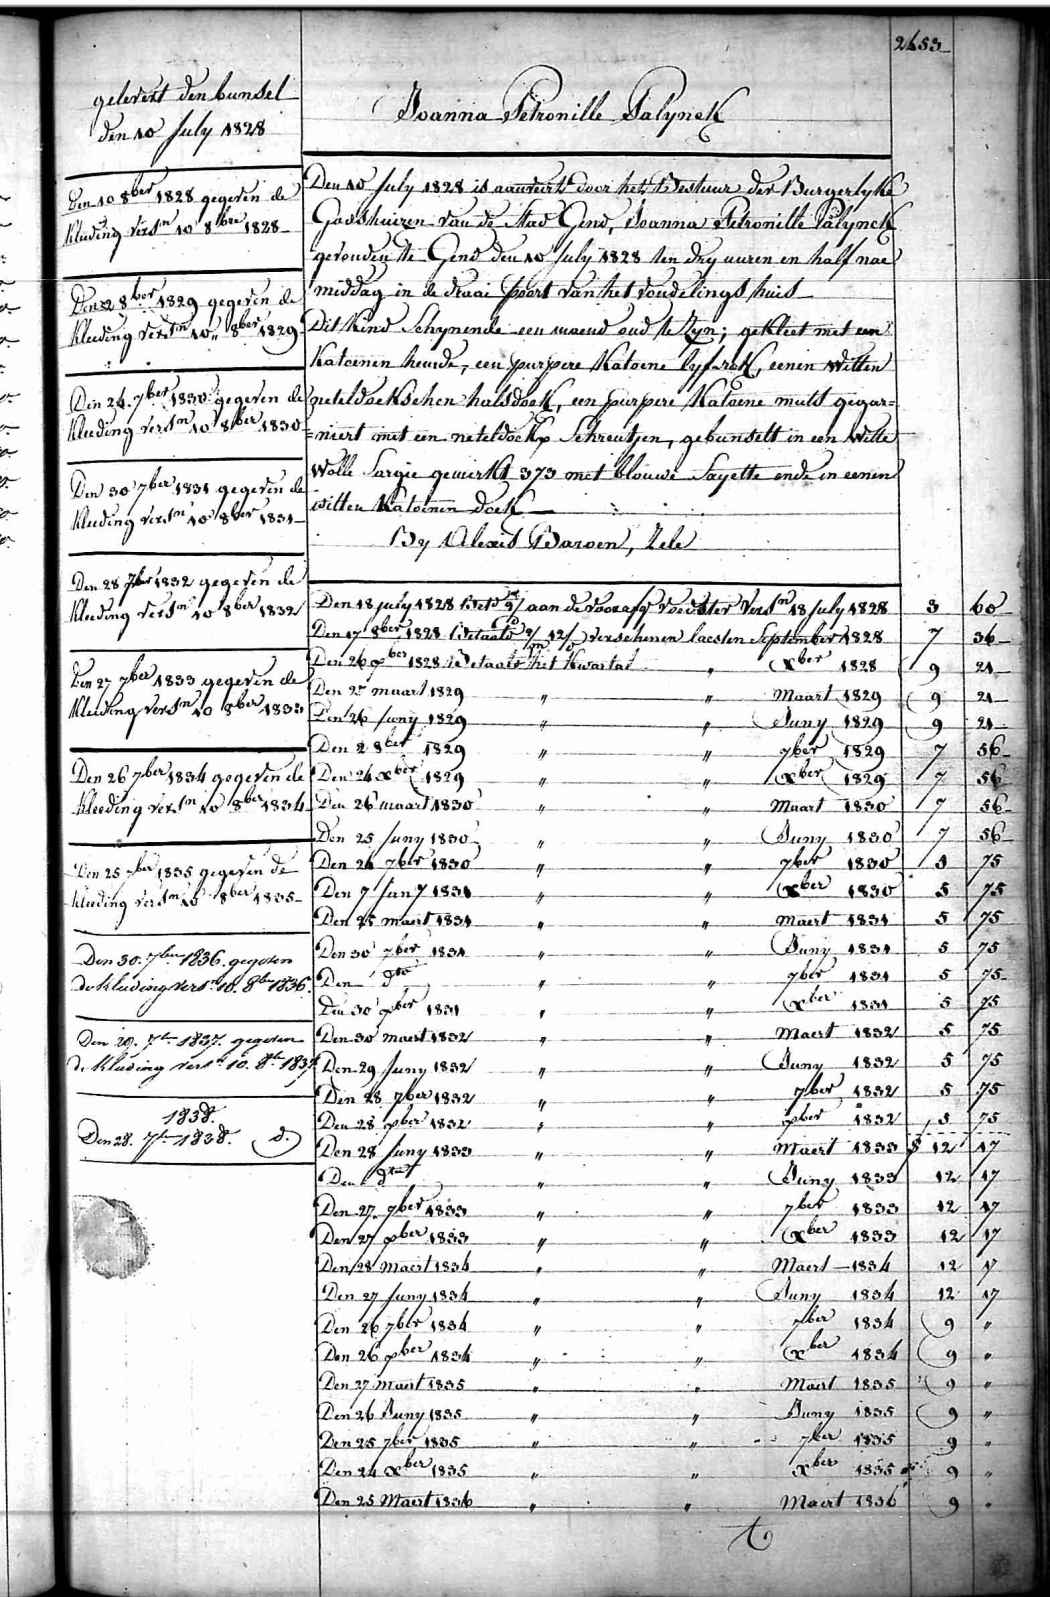 2653
gelevert den bunsel
den 10 July 1828
Joanna Petronille Palynck
Den 10 8ber 1828 gegeven de
kleeding versn 10 8bre 1828
Den 2 8ber 1829 gegeven de
kleeding versn 10 8ber 1829
Den 24 7ber 1830 gegeven de
kleeding versn 10 8ber 1830
Den 30 7ber 1831 gegeven de
kleeding versn 10 8ber 1831
Den 28 7ber 1832 gegeven de
kleeding versn 10 8ber 1832
Den 27 7ber 1833 gegeven de
kleeding versn 10 8ber 1833
Den 26 7ber 1834 gegeven de
kleeding versn 10 8ber 1834
Den 25 7ber 1835 gegeven de
kleeding versn 10 8ber 1835
Den 30. 7ber 1836. gegeven
de kleeding versn 10. 8br 1836.
Den 29. 7br 1837. gegeven
de kleeding versn 10. 8br 1837
1838.
Den 28. 7br 1838. d.
Den 10 July 1828 is aanveirt door het Bestuur der Burgerlyke
Godshuizen van de Stad Gend, Joanna Petronille Palynck
gevonden te Gend den 10 July 1828 ten dry uuren en half nae
middag in de draai poort van het vondelings huis
Dit Kind Schynende een maend oud te zyn; gekleet met een
Katoenen hemde, een purpere Katoene lyfrok, eenen witten
neteldoekschen halsdoek, een purpere Katoene muts gegar=
=niert met een neteldoeksx Schreutjen, gebunselt in een witte
Wolle Sargie gemerkt 373 met blouwe Sayette ende in eenen
witten Katoenen doek
By Alexis Baroen, Zele
Den 18 july 1828 aan de voorafg voedster versn 18 july 1828 3 60
Den 17 8ber 1828 Betaald verschenen laesten September 1828 7 36
Den 26 xber 1828 Betaalt het Kwartal " Xber 1828 9 21
Den 27 maart 1829 " " Maart 1829 9 21
Den 26 Juny 1829 " " Juny 1829 9 21
Den 2 8ber 1829 " " 7ber 1829 7 56
Den 24 xber 1829 " " Xber 1829 7 56
Den 26 maart 1830 " " Maart 1830 7 56
Den 25 Juny 1830 " " Juny 1830 7 56
Den 24 7ber 1830 " " 7ber 1830 5 75
Den 7 1831 " " Xber 1830 5 75
Den 25 maert 1831 " " Maert 1831 5 75
Den 30 7ber 1831 " " Juny 1831 5 75
Den dto " " 7ber 1831 5 75
Den 30 xber 1831 " " Xber 1831 5 75
Den 30 maert 1832 " " Maert 1832 5 75
Den 29 Juny 1832 " " Juny 1832 5 75
Den 28 7ber 1832 " " 7ber 1832 5 75
Den 28 xber 1832 " " xber 1832 5 75
Den 28 Juny 1833 " " Maert 1833 12 17
Den dto " " Juny 1833 12 17
Den 27 7ber 1833 " " 7ber 1833 12 17
Den 27 xber 1833 " " Xber 1833 12 17
Den 28 Maert 1834 " " Maert 1834 12 17
Den 27 Juny 1834 " " Juny 1834 12 17
Den 26 7ber 1834 " " 7ber 1834 9 "
Den 26 xber 1834 " " Xber 1834 9 "
Den 27 Maert 1835 " " Maert 1835 9 "
Den 26 Juny 1835 " " Juny 1835 9 "
Den 25 7ber 1835 " " 7ber 1835 9 "
Den 24 Xber 1835 " " Xber 1835 9 "
Den 25 Maert 1836 " " Maert 1836 9 "